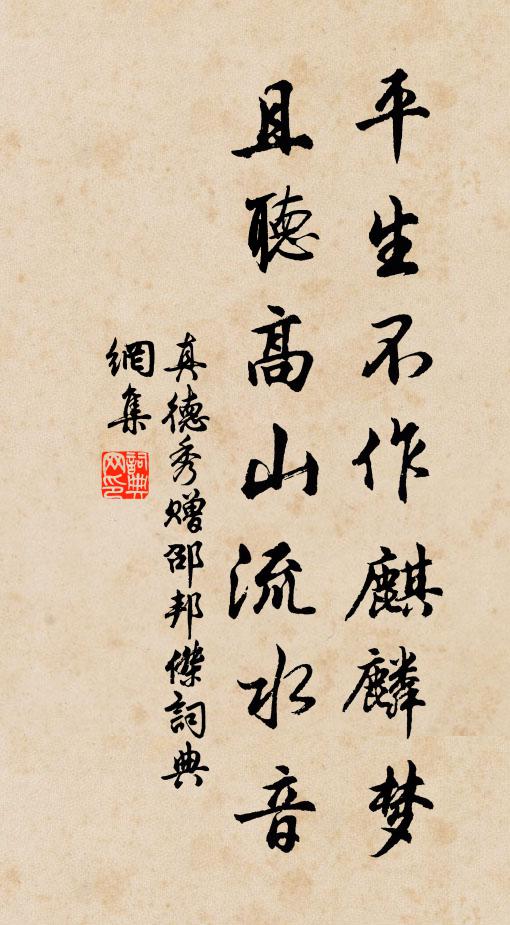 平生不作麒麟梦
且聽高山流水音
真德秀赠邵邦傑詞典
網集
詞典网印